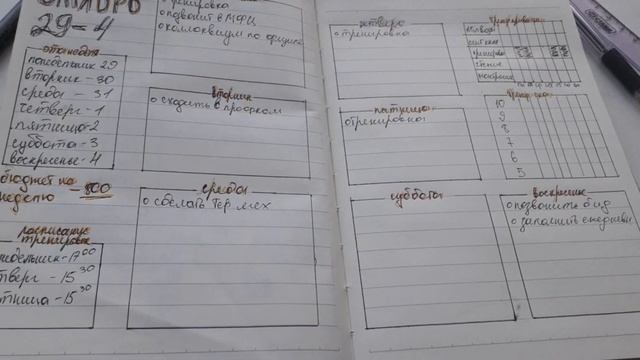 29-4
эта неделя
понедельник 29
вторник - 30
среда - 31
четверг - 1
пятница - 2
суббота - 3
воскресенье - 4
бюджет на
неделю - 800
расписание
тренировок
понедельник - 17 00
четверг - 15 30
пятница - 15 30
тренировка
позвонить в МФЦ
коллоквиум по физике
вторник
сходить в профком
среда
сделать тер мех
четверг
тренировка
пятница
тренировка
суббота
воскресенье
позвонить
заполнить ежедневник
чтение
10
9
8
7
6
5